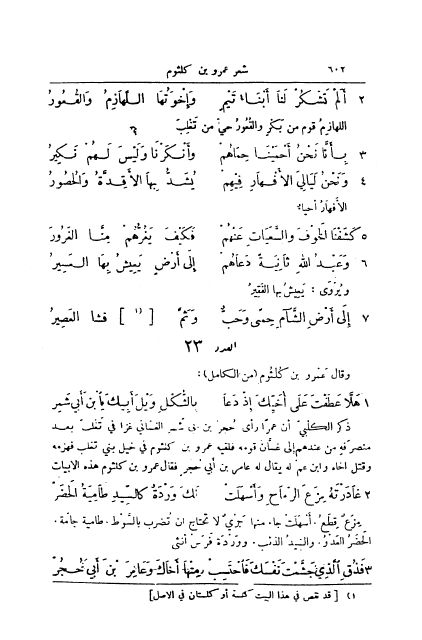 ٦٠٢ شعر عمرو بن كلثوم
٢ أَلَمْ تَشْكُرْ لَنَا أَبْنَاءُ تَيْمٍ وَإِخْوَتُهَا اللَّهَازِمُ وَالْقُعُورُ
اللهازم قوم من بكر والقعور حيّ من تغلب
٣ بِأَنَّا نَحْنُ أَحْمَيْنَا حِمَاهُمْ وَأَنْكَرْنَا وَلَيْسَ لَهُمْ نَكِيرُ
٤ وَنَحْنُ لَيَالِيَ الْأَفْهَارِ فِيهِمْ يُشَدُّ بِهَا الْأَقِدَّةُ وَالْحُصُورُ
الأفهار أحياء
٥ كَشَفْنَا الْخَوْفَ وَالسَّعَيَاتِ عَنْهُمْ فَكَيْفَ يَغُرُّهُمْ مِنَّا الْغَرُورُ
٦ وَعَبْدُ اللهِ ثَانِيَةً دَعَاهُمْ إِلَى أَرْضٍ يَعِيشُ بِهَا الْفَقِيرُ
ويُرْوَى: يعيش بها الفقير
٧ إِلَى أَرْضِ الشَّآمِ حِمًى وَحَبٌّ وَثَمَّ [ ١) ] فشا العصيرُ
العدد ٢٣
وقال عمرو بن كلثوم (من الكامل):
١ هَلَّا عَطَفْتَ عَلَى أَخِيكَ إِذْ دَعَا بِالثُّكْلِ وَيْلَ أَبِيكَ يَا بْنَ أَبِي شَمِرْ
ذكر الكلبي أن عمرًا رأى حجر بن أبي شمر الغساني غزا في تغلب بعد
منصرفه من عندهم إلى غسان قومه فلقيه عمرو بن كلثوم في خيل بني تغلب فهزمه
وقتل اخاه وابن عم له يقال له عامر بن أبي حجر فقال عمرو بن كلثوم هذه الابيات
٢ غَادَرْتَهُ يَزَعُ الرِّمَاحَ وَأَسْهَلَتْ لَكَ وَرْدَةٌ كَالسِّيدِ طَامِيَةُ الْحُضُرْ
يَزَعُ يقطع. أسهلت جاء منها جري لا تحتاج ان تضرب بالسوط. طامية جامة.
الحُضر العَدْو. والسيد الذئب. ووردة فرس أنثى
٣ فَذُقِ الَّذِي جَشَّمْتَ نَفْسَكَ فَاحْتَسِبْ فِيهَا أَخَاكَ وَعَامِرَ بْنَ أَبِي حُجُرْ
١) [ قد نقص في هذا البيت كلمة أو كلمتان في الاصل ]